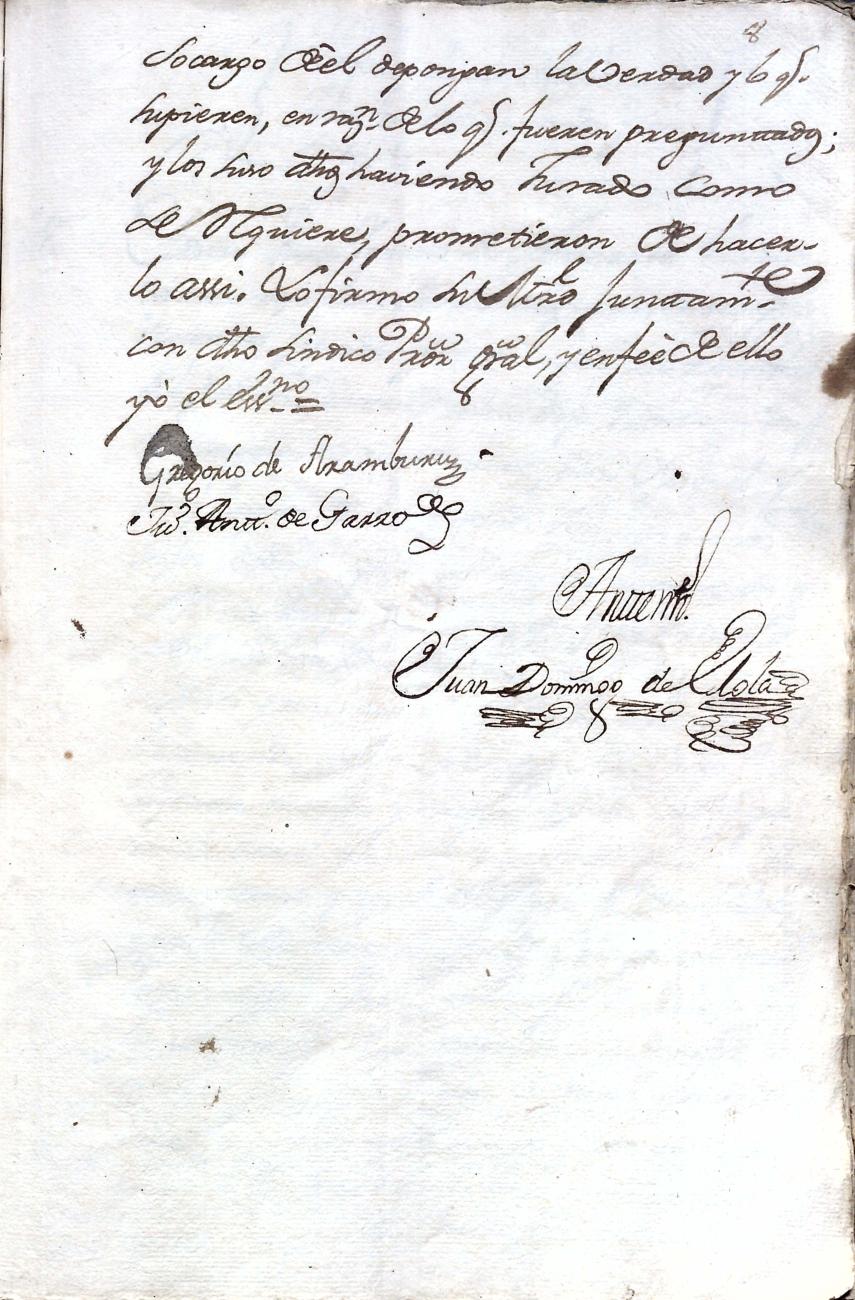 8
Socargo de el depongan la Verdad y lo qe.
supieren, en razn. de lo qe. fueren preguntados;
y los suso dhos haviendo Jurado como
se Requiere, prometieron de hacer-
lo assi. Lo firmo su Mrd Juntamte
con dho sindico Pror gral, y en feè de ello
yò el essno =
Gregorio de Aramburu
Juo. Antto. de Garro
Antemi.
Juan Domingo de